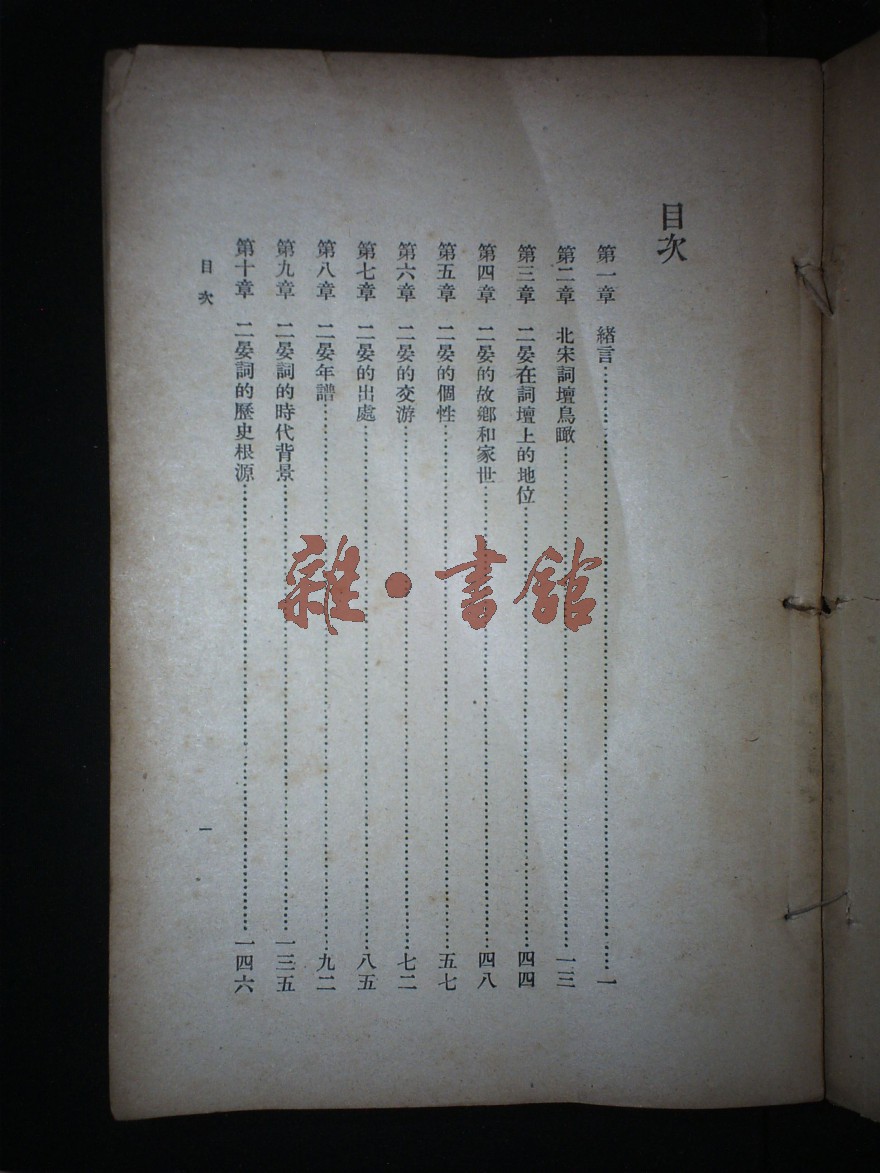 目次
第一章 緒言…………一
第二章 北宋詞壇鳥瞰…………一三
第三章 二晏在詞壇上的地位…………四四
第四章 二晏的故鄉和家世…………四八
第五章 二晏的個性…………五七
第六章 二晏的交游…………七二
第七章 二晏的出處…………八五
第八章 二晏年譜…………九二
第九章 二晏詞的時代背景…………一三五
第十章 二晏詞的歷史根源…………一四六
目次
一
雜·書館